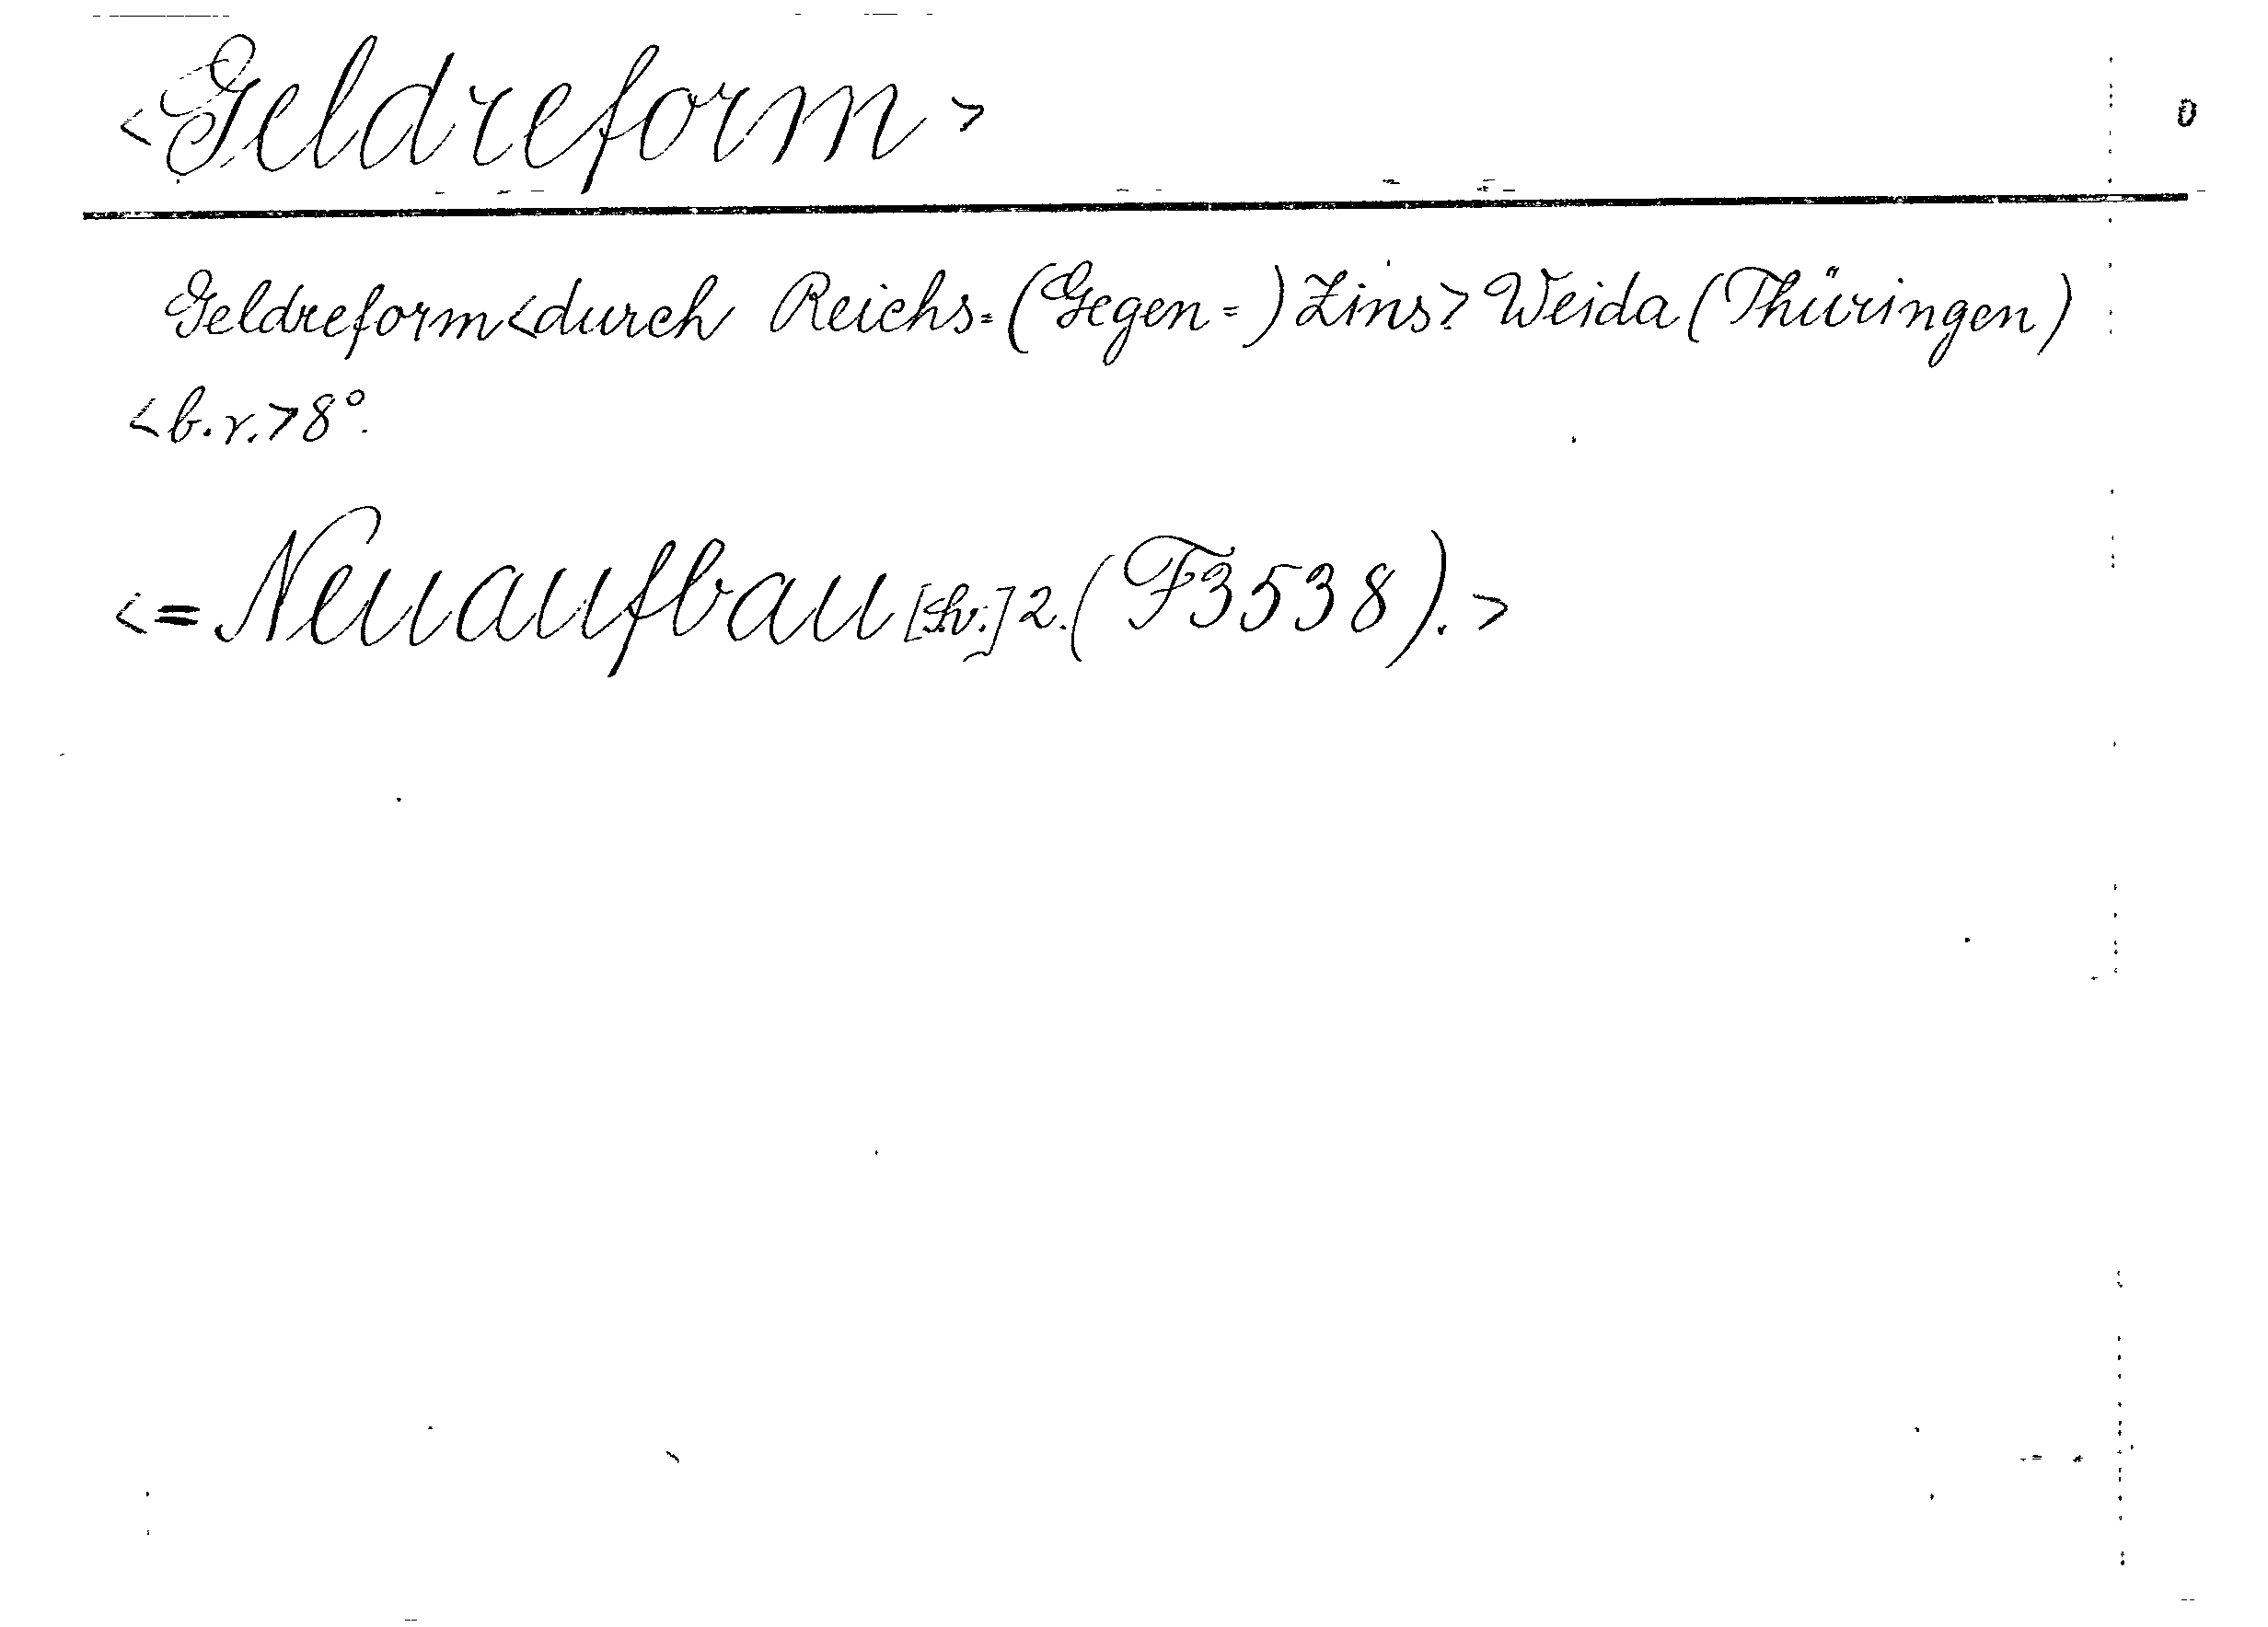 <Geldreform>
Geldreform<durch Reichs=(Gegen=)Zins> Weida (Thüringen)
<b.r.>8°.
<=Neuaufbau 2. (F3538).>